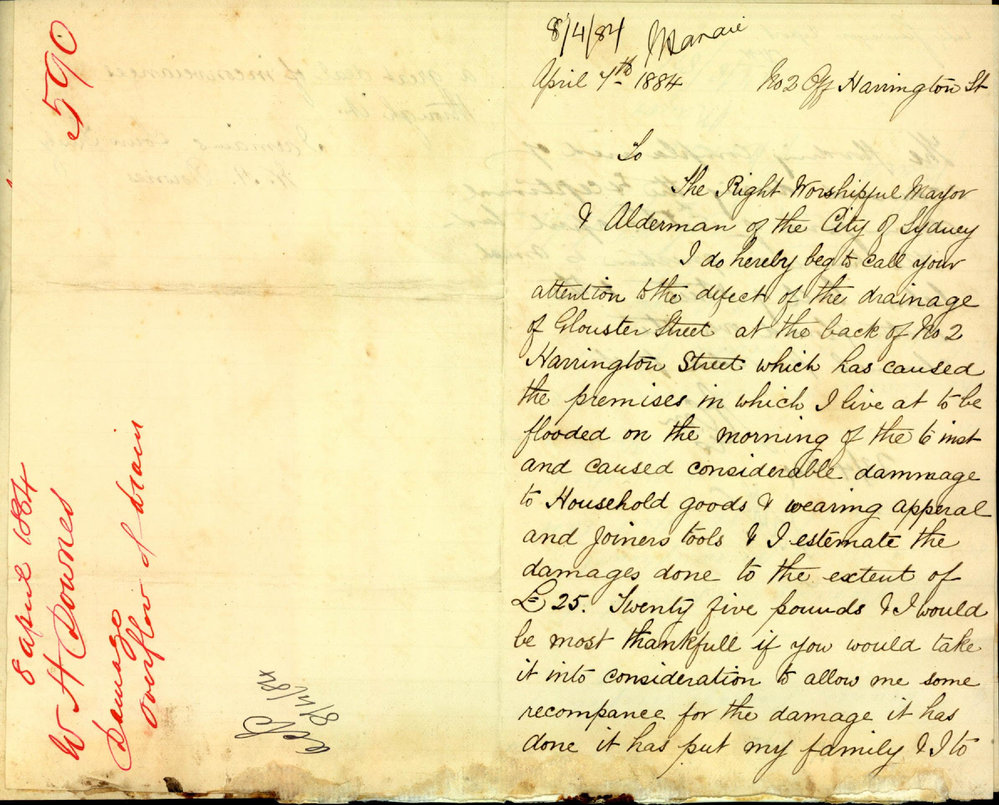 590
8 April 1884
W H Downes
Damage
overflow of drain
8/4/84
8/4/84
April 7th 1884 No 2 Off Harrington St
To
The Right Worshipful Mayor
& Alderman of the City of Sydney
I do hereby beg to call your
attention to the defect of the drainage
of Glouster Street at the back of No 2
Harrington Street which has caused
the premises in which I live at to be
flooded on the morning of the 6 inst
and caused considerable dammage
to Household goods & wearing apperal
and Joiners tools & I estemate the
damages done to the extent of
£25. Twenty five pounds & I would
be most thankfull if you would take
it into consideration to allow me some
recompance for the damage it has
done it has put my family & I to
a great deal of inconveiances
through it.